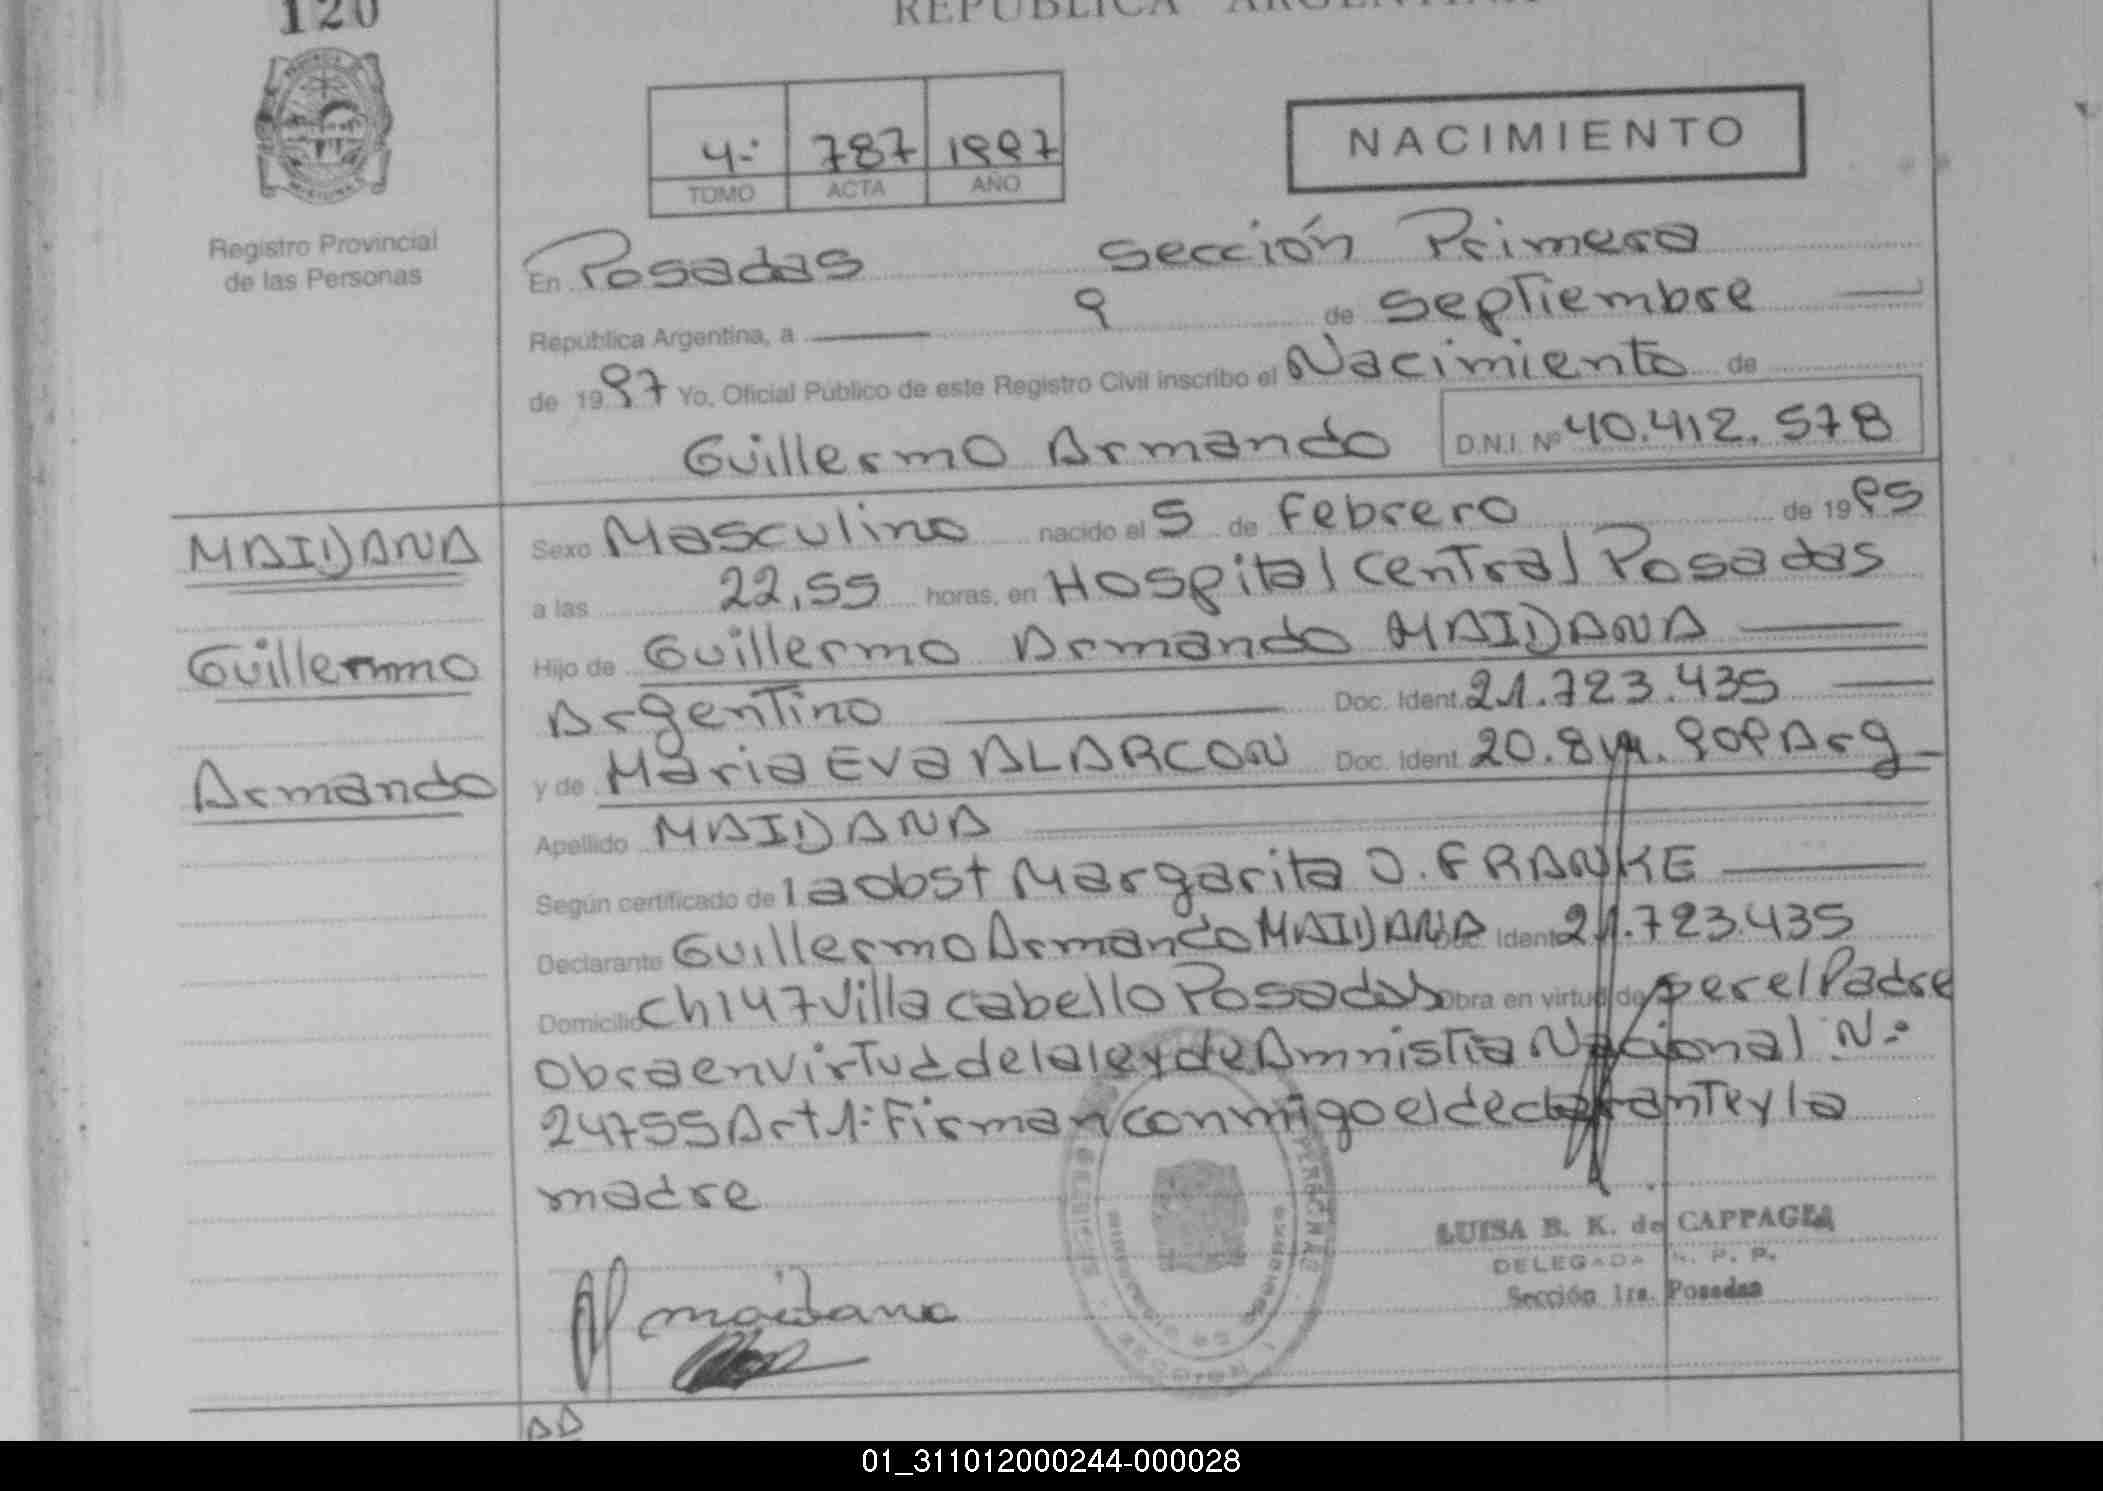 120
REPUBLICA ARGENTINA
4-: 787 1997
TOMO ACTA AÑO
NACIMIENTO
Registro Provincial
de las Personas
En Posadas Sección Primera
República Argentina, a 9 de Septiembre
de 1997 Yo, Oficial Público de este Registro Civil inscribo el Nacimiento de
Guillermo Armando D.N.I. Nº 40.412.578
MAIDANA
Guillermo
Armando
Sexo Masculino nacido el 5 de Febrero de 1995
a las 22,55 horas, en Hospital Central Posadas
Hijo de Guillermo Armando MAIDANA
Argentino Doc. Ident. 21.723.435
y de Maria Eva ALARCON Doc. Ident. 20. .909 Arg
Apellido MAIDANA
Según certificado de la obst Margarita O. FRANKE
Declarante Guillermo Armando MAIDANA Doc. Ident 21.723.435
Domicilio Ch 147 Villa Cabello Posadas Obra en virtud de ser el Padre
Obra en virtud de la ley de Amnistia Nacional N-:
24755 Art 1: Firman conmigo el declarante y la
madre
maidana
LUISA B. K. de CAPPAGLIA
DELEGADA R. P. P.
Sección 1ra. Posadas
01_311012000244-000028